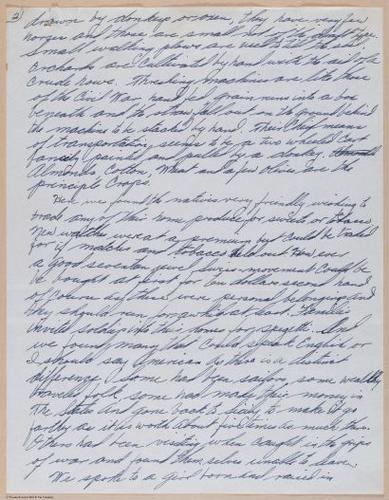 2)
drawn by donkeys or oxen, they have very few
horses and those are small not of the draft type.
Small walking plows are used to till the soil.
Orchards are cultivated by hand with the aid of a
crude hoe. Threshing machines are like those
of the Civil War, hand fed grain runs into a box
beneath and the straw falls out on the ground behind
the machine to be stacked by hand. Their means
of transportation seems to be a two wheeled cart
fancily painted and pulled by a donkey.
Almonds, Cotton, Wheat and a few Olives are the
principle Crops.
Here we found the natives very friendly wishing to
trade any of their home produce for sweets or tobacco
New watches were at a premium but could be traded
for if matches and tobacco held out. However
a good seventeen jewel Swiss movement could be
be bought at first for ten dollars second hand
of course as these were personal belongings and
they should run for awhile at least. Families
invited soldiers into their homes for spagetti. And
we found many that could speak English or
I should say American as there is a distinct
difference. Some had been sailors, some wealthy
traveled folk, some had made their money in
the States and gone back to Italy to make it go
farther as it is worth about five times as much there.
Others had been visiting when caught in the grips
of war and found themselves unable to leave.
We spoke to a girl born and raised in